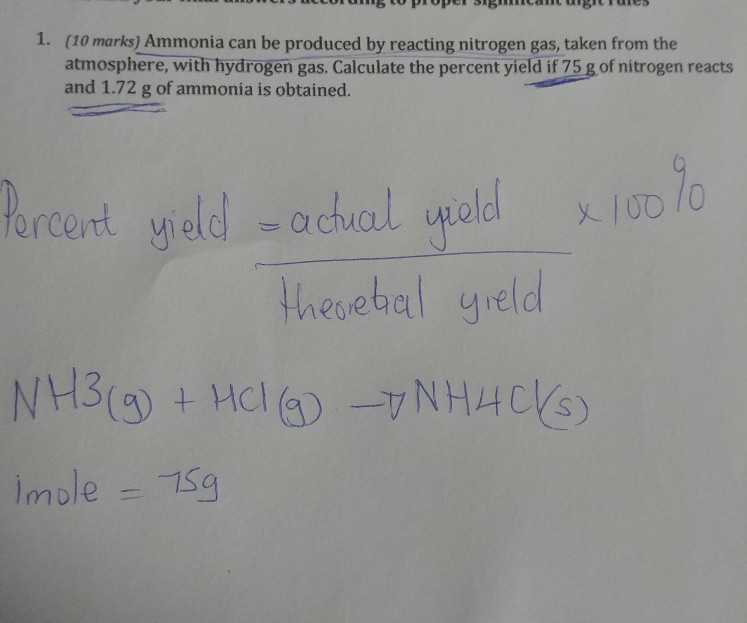 1. (10 marks) Ammonia can be produced by reacting nitrogen gas, taken from the
atmosphere, with hydrogen gas. Calculate the percent yield if 75 g of nitrogen reacts
and 1.72 g of ammonia is obtained.
Percent yield = actual yield x 100%
theoretial yield
NH3(g) + HCl(g) → NH4Cl(s)
1mole = 75g